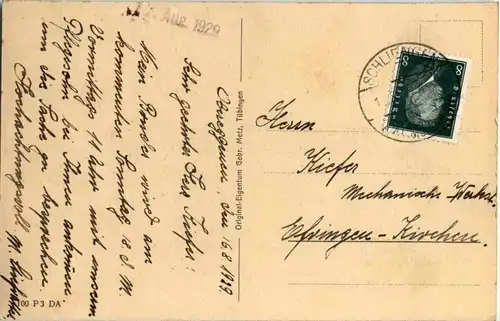 Aug 1929
den 16.8.1929.
Sehr geehrter Herr Kiefer!
Mein Bruder wird am
kommenden Sonntag d. M.
Vormittags 11 Uhr mit unserem
Pflegesohn bei Ihnen ankommen
um die Sache zu besprechen.
Hochachtungsvoll
100 P 3 DA
Original-Eigentum Gebr. Metz, Tübingen
SCHLIENGEN
8 8
Deutsches Reich
Herrn
Kiefer
Mechanische Werkst.
Efringen-Kirchen.